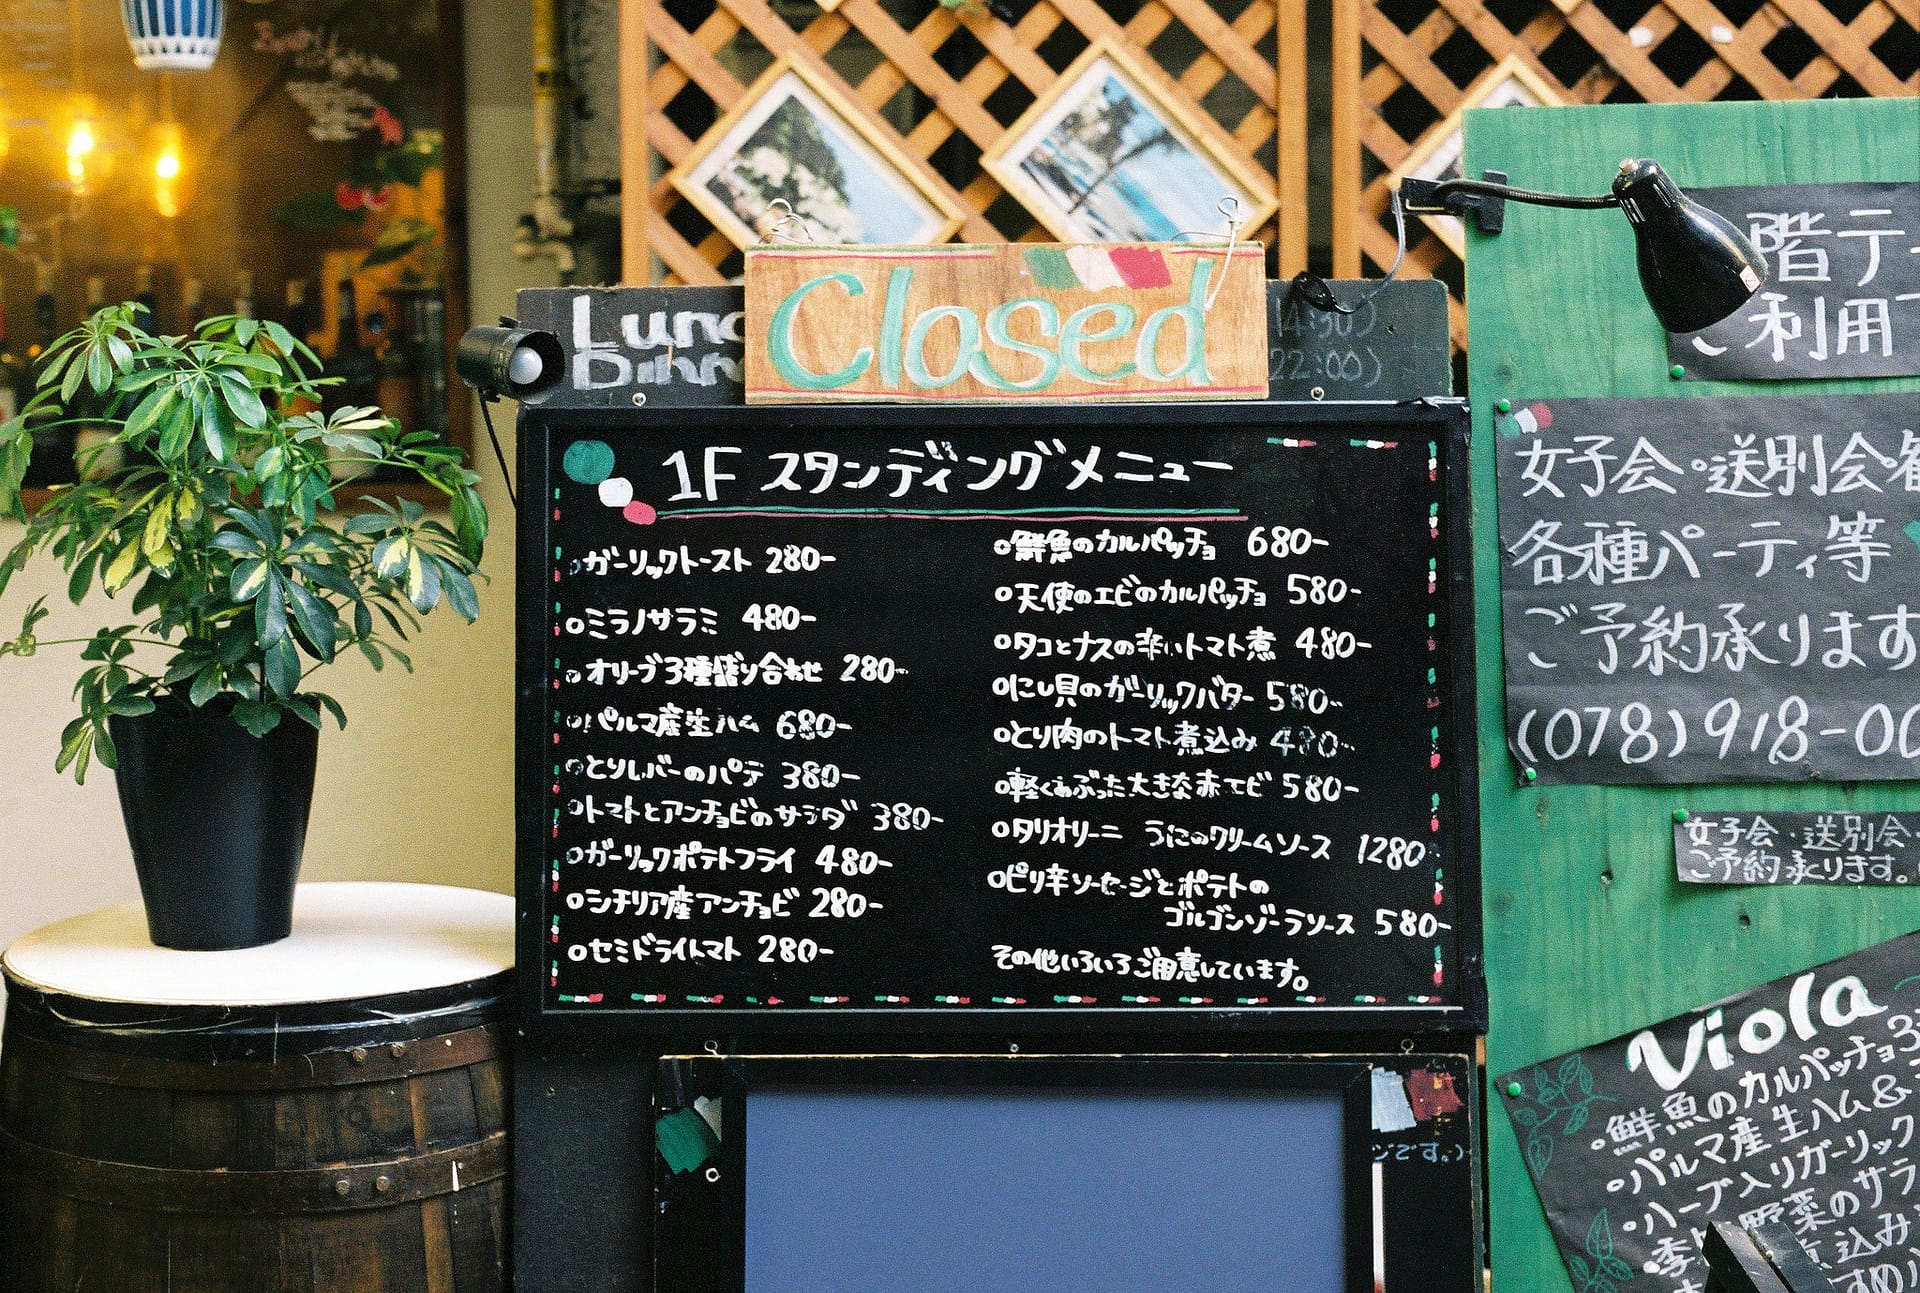 Closed
Lunc
Dinn
14:30)
22:00)
1F スタンディングメニュー
ガーリックトースト 280-
ミラノサラミ 480-
オリーブ3種盛り合わせ 280-
パルマ産生ハム 680-
とりレバーのパテ 380-
トマトとアンチョビのサラダ 380-
ガーリックポテトフライ 480-
シチリア産アンチョビ 280-
セミドライトマト 280-
鮮魚のカルパッチョ 680-
天使のエビのカルパッチョ 580-
タコとナスの辛いトマト煮 480-
にし貝のガーリックバター 580-
とり肉のトマト煮込み 480-
軽くあぶった大きな赤エビ 580-
タリオリーニ うにのクリームソース 1280-
ピリ辛ソーセージとポテトの
ゴルゴンゾーラソース 580-
その他いろいろご用意しています。
階テ
ご利用
女子会・送別会・
各種パーティ等
ご予約承ります
(078)918-00
女子会・送別会・
ご予約承ります。
Viola
・鮮魚のカルパッチョ3
・パルマ産生ハム&
・ハーブ入りガーリック
・季 野菜のサラ
煮込み
すめ
ジです。)